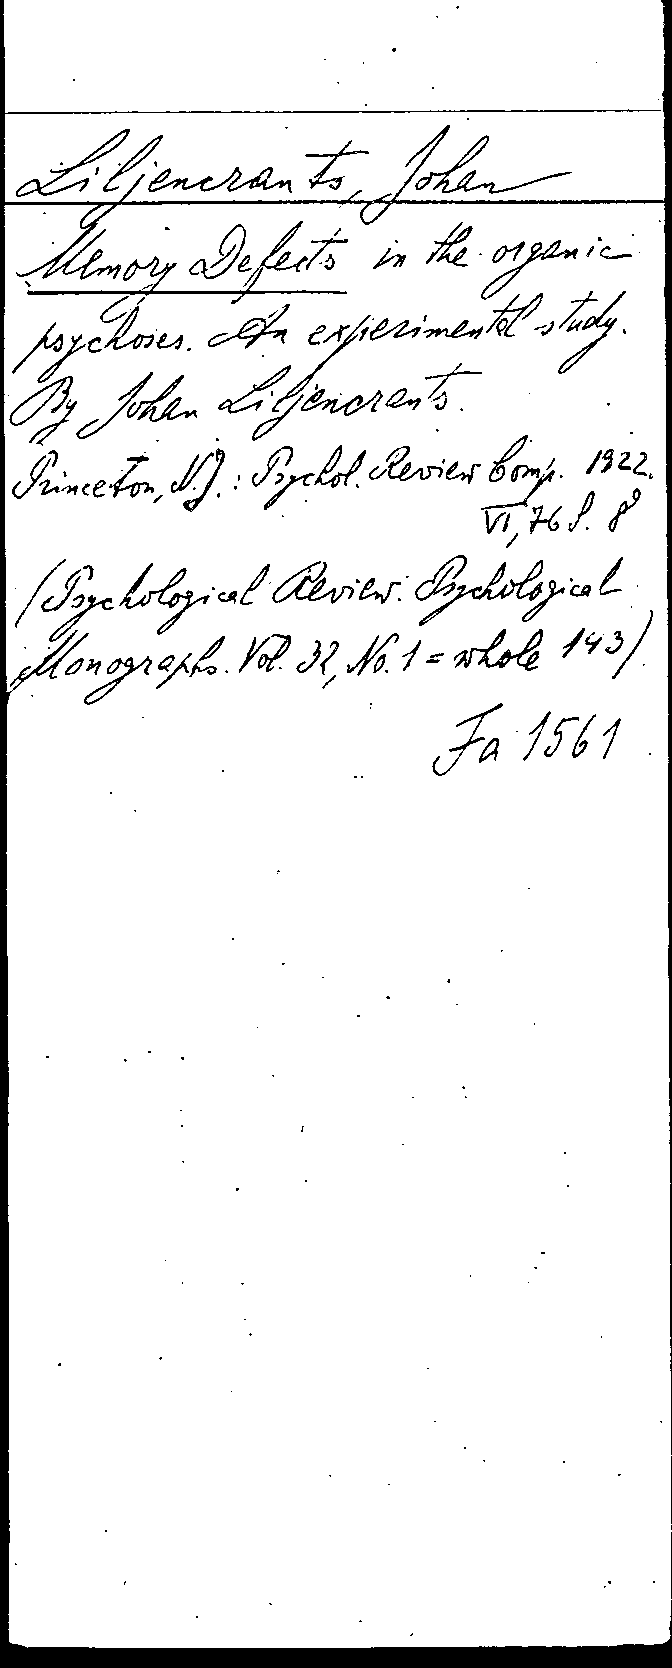 Liljencrants, Johan
Memory Defects in the organic
psychoses. An experimental study.
By Johan Liljencrants.
Princeton, N.J.: Psychol. Review Comp. 1922.
VI, 76 S. 8°
(Psychological Review. Psychological
Monographs. Vol. 32, No. 1 = whole 143)
Fa 1561